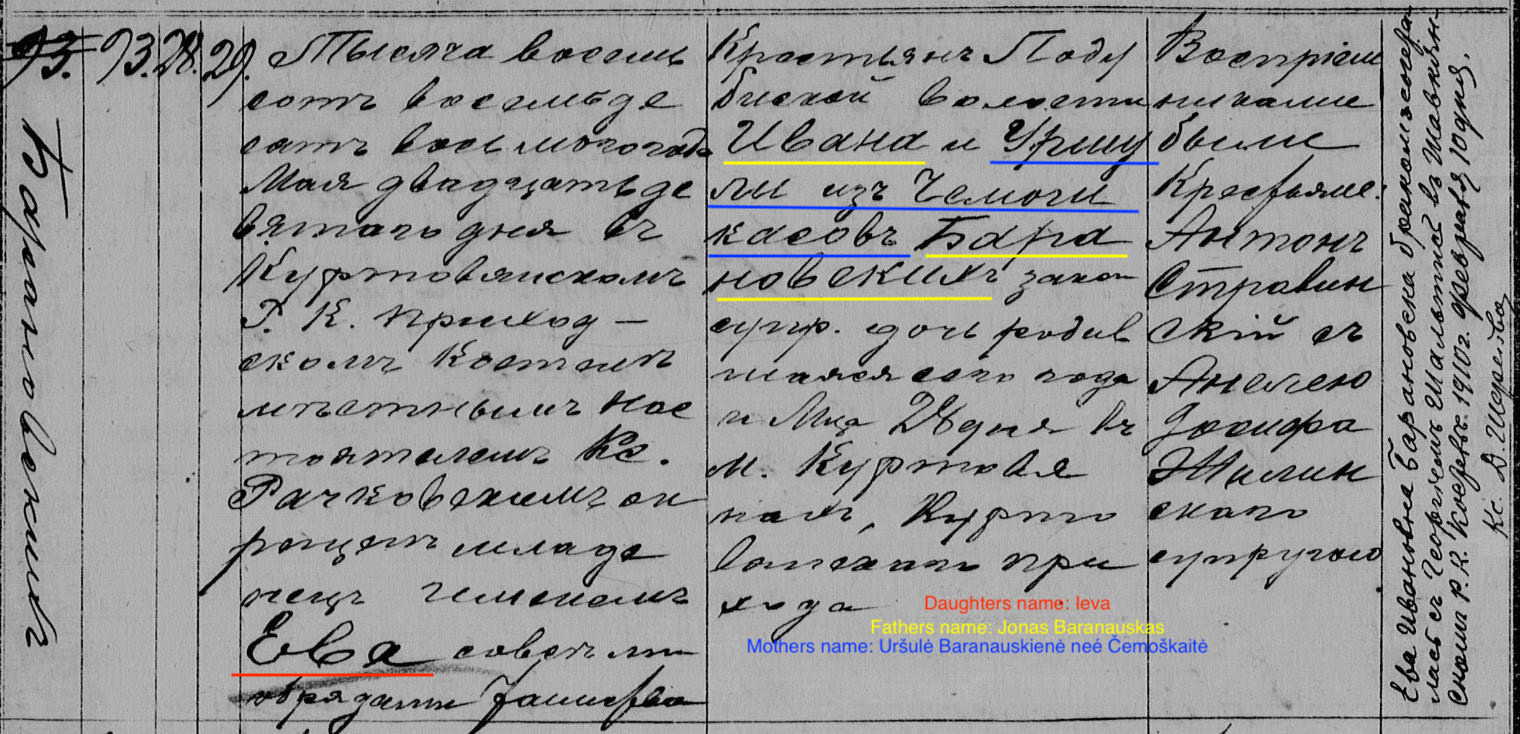 Барановскихъ
93. 93. 28. 29.
Тысяча восемь
сотъ восемьде
сятъ восьмогогода
Мая двадцатьде
вятаго дня въ
Куртовянскомъ
Р. К. приход—
скомъ Костелѣ
мѣстнымъ Нас
тоятелемъ Кс.
Рачковскимъ ок
рещенъ младе
нецъ именемъ
Ева совсѣми
обрядами Таинства
Крестьянъ Поду
бисской волости
Ивана и Уршу
ли изъ Чемоги
касовъ Бара
новскихъ закон
супр. дочь родив
шаяся сего года
и Мца 28 дня въ
м. Куртовя
нахъ, Курто
вянскаго при
хода
Воспріем
никами
были
Крестьяне:
Антонъ
Стравин
скій съ
Анелею
Іосифа
Жилин
скаго
супругою
Ева Ивановна Барановска бракомъсочета
лась съ Георгіемъ въ Шавкян
скомъ Р. К. Костелѣ. 1910г. Февраля 10дня.
Кс. Д.
Daughters name: Ieva
Fathers name: Jonas Baranauskas
Mothers name: Uršulė Baranauskienė neé Čemoškaitė